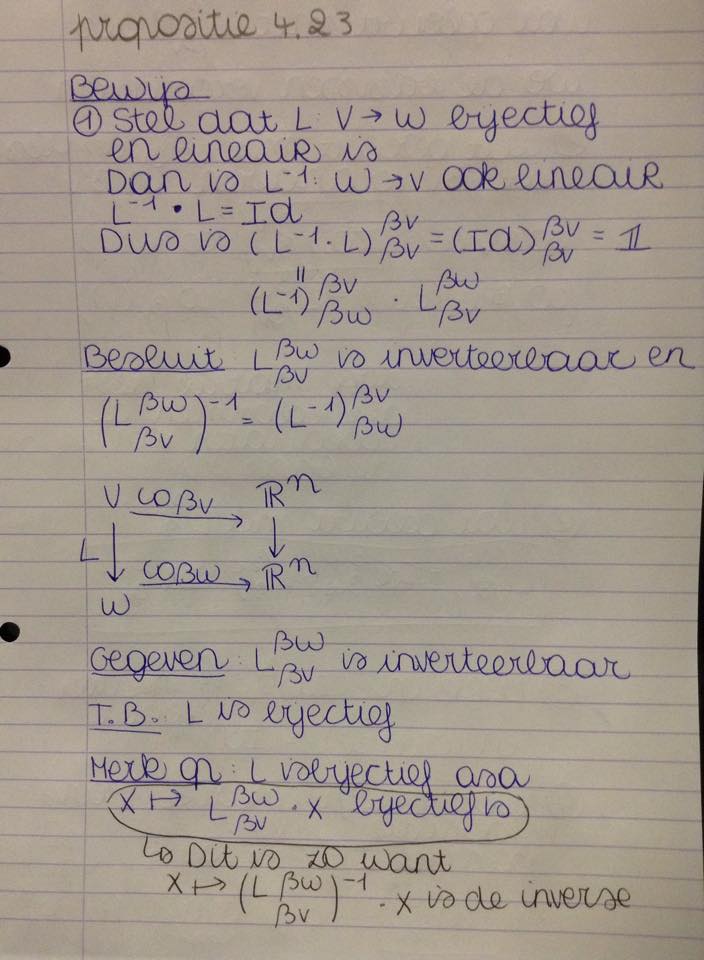 propositie 4.23
Bewijs
① Stel dat L: V → W bijectief
en lineair is
Dan is L⁻¹: W → V ook lineair
L⁻¹ • L = Id
Dus is (L⁻¹ · L)^{βV}_{βV} = (Id)^{βV}_{βV} = 𝟙
||
(L⁻¹)^{βV}_{βW} · L^{βW}_{βV}
Besluit L^{βW}_{βV} is inverteerbaar en
(L^{βW}_{βV})⁻¹ = (L⁻¹)^{βV}_{βW}
V co_{βV} → ℝⁿ
L ↓ ↓
W co_{βW} → ℝⁿ
Gegeven: L^{βW}_{βV} is inverteerbaar
T.B. L is bijectief
Merk op: L is bijectief asa
X ↦ L^{βW}_{βV} · X bijectief is
↳ Dit is zo want
X ↦ (L^{βW}_{βV})⁻¹ · X is de inverse